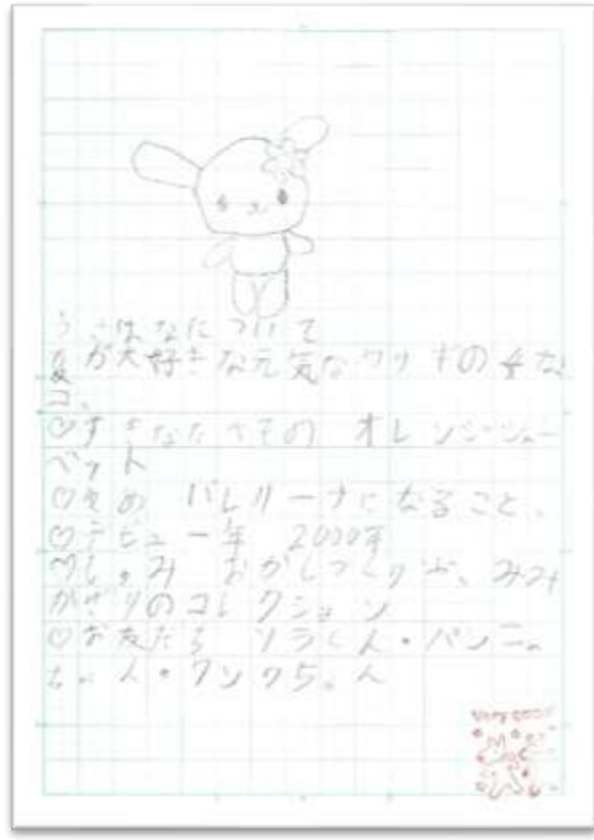 うさはなについて
夏が大好きな元気なウサギの女な
コ、
♡すきなたべもの オレンジシャー
ベット
♡ゆめ バレリーナになること、
♡デビュー年 2000年
♡しゅみ おかしつくりや、みみ
かざりのコレクション
♡お友だち ソラくん・パンニ
ちゃん・クックちゃん
Very good